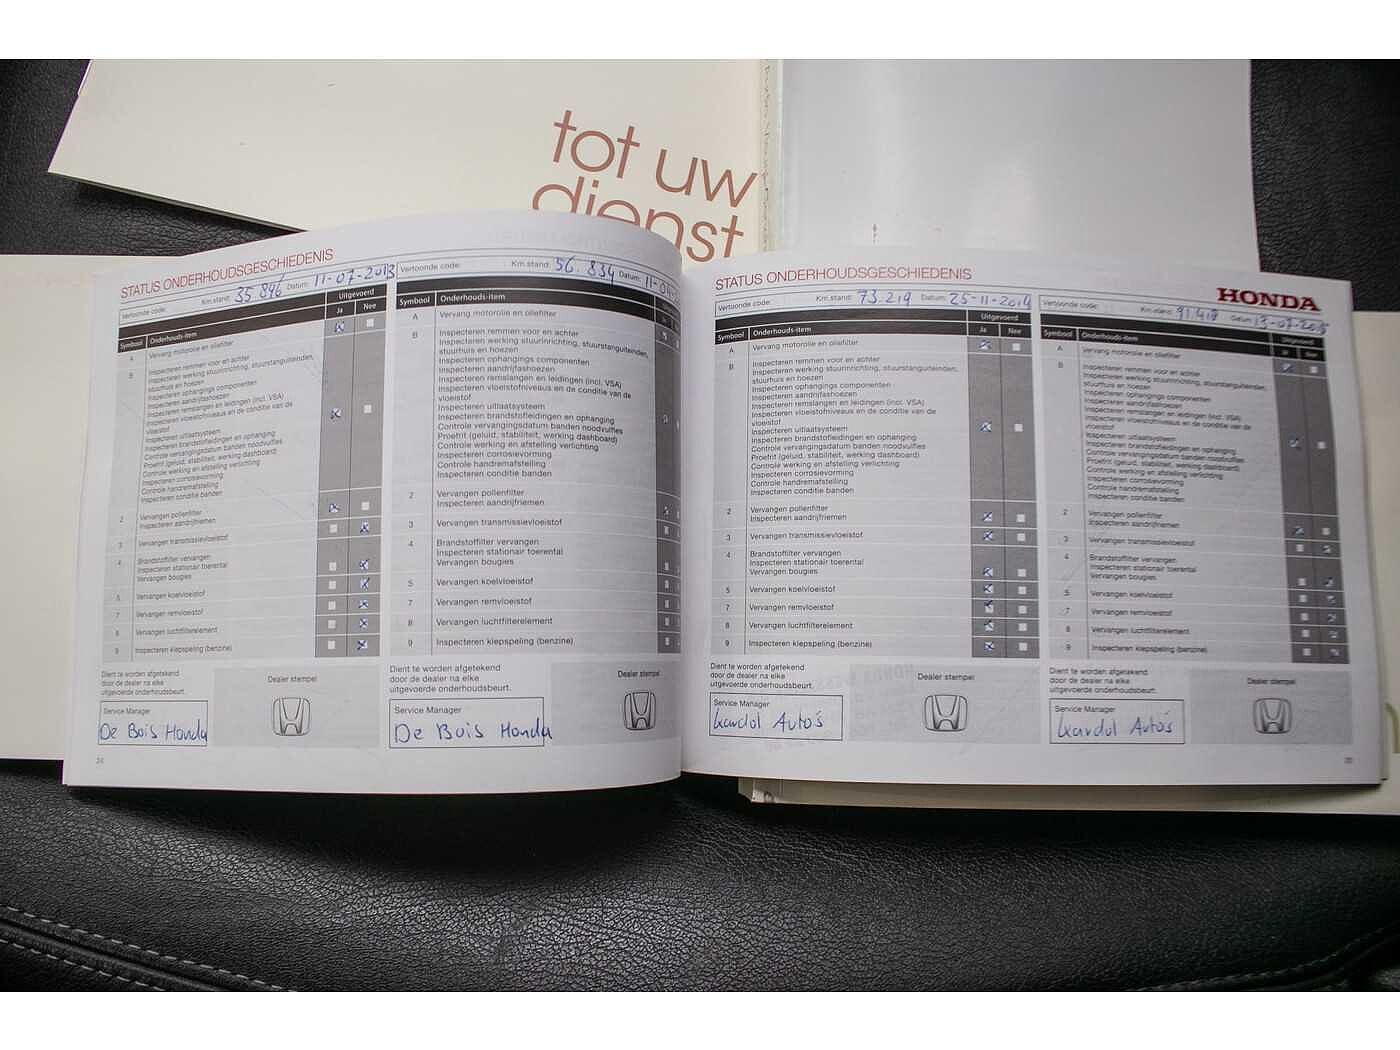 tot uw
dienst
STATUS ONDERHOUDSGESCHIEDENIS
Vertoonde code: Km.stand: 35 896 Datum: 11-07-2013
Uitgevoerd
Symbool Onderhouds-item Ja Nee
A Vervang motorolie en oliefilter
B Inspecteren remmen voor en achter
Inspecteren werking stuurinrichting, stuurstanguiteinden,
stuurhuis en hoezen
Inspecteren ophangings componenten
Inspecteren aandrijfashoezen
Inspecteren remslangen en leidingen (incl. VSA)
Inspecteren vloeistofniveaus en de conditie van de
vloeistof
Inspecteren uitlaatsysteem
Inspecteren brandstofleidingen en ophanging
Controle vervangingsdatum banden noodvulfles
Proefrit (geluid, stabiliteit, werking dashboard)
Controle werking en afstelling verlichting
Inspecteren corrosievorming
Controle handremafstelling
Inspecteren conditie banden
2 Vervangen pollenfilter
Inspecteren aandrijfriemen
3 Vervangen transmissievloeistof
4 Brandstoffilter vervangen
Inspecteren stationair toerental
Vervangen bougies
5 Vervangen koelvloeistof
7 Vervangen remvloeistof
8 Vervangen luchtfilterelement
9 Inspecteren klepspeling (benzine)
Dient te worden afgetekend
door de dealer na elke
uitgevoerde onderhoudsbeurt.
Dealer stempel
Service Manager
De Bois Honda
Vertoonde code: Km.stand: 56.834 Datum:
Symbool Onderhouds-item
A Vervang motorolie en oliefilter
B Inspecteren remmen voor en achter
Inspecteren werking stuurinrichting, stuurstanguiteinden,
stuurhuis en hoezen
Inspecteren ophangings componenten
Inspecteren aandrijfashoezen
Inspecteren remslangen en leidingen (incl. VSA)
Inspecteren vloeistofniveaus en de conditie van de
vloeistof
Inspecteren uitlaatsysteem
Inspecteren brandstofleidingen en ophanging
Controle vervangingsdatum banden noodvulfles
Proefrit (geluid, stabiliteit, werking dashboard)
Controle werking en afstelling verlichting
Inspecteren corrosievorming
Controle handremafstelling
Inspecteren conditie banden
2 Vervangen pollenfilter
Inspecteren aandrijfriemen
3 Vervangen transmissievloeistof
4 Brandstoffilter vervangen
Inspecteren stationair toerental
Vervangen bougies
5 Vervangen koelvloeistof
7 Vervangen remvloeistof
8 Vervangen luchtfilterelement
9 Inspecteren klepspeling (benzine)
Dient te worden afgetekend
door de dealer na elke
uitgevoerde onderhoudsbeurt.
Dealer stempel
Service Manager
De Bois Honda
STATUS ONDERHOUDSGESCHIEDENIS
HONDA
Vertoonde code: Km.stand: 73.219 Datum: 25-11-2014
Uitgevoerd
Symbool Onderhouds-item Ja Nee
A Vervang motorolie en oliefilter
B Inspecteren remmen voor en achter
Inspecteren werking stuurinrichting, stuurstanguiteinden,
stuurhuis en hoezen
Inspecteren ophangings componenten
Inspecteren aandrijfashoezen
Inspecteren remslangen en leidingen (incl. VSA)
Inspecteren vloeistofniveaus en de conditie van de
vloeistof
Inspecteren uitlaatsysteem
Inspecteren brandstofleidingen en ophanging
Controle vervangingsdatum banden noodvulfles
Proefrit (geluid, stabiliteit, werking dashboard)
Controle werking en afstelling verlichting
Inspecteren corrosievorming
Controle handremafstelling
Inspecteren conditie banden
2 Vervangen pollenfilter
Inspecteren aandrijfriemen
3 Vervangen transmissievloeistof
4 Brandstoffilter vervangen
Inspecteren stationair toerental
Vervangen bougies
5 Vervangen koelvloeistof
7 Vervangen remvloeistof
8 Vervangen luchtfilterelement
9 Inspecteren klepspeling (benzine)
Dient te worden afgetekend
door de dealer na elke
uitgevoerde onderhoudsbeurt.
Dealer stempel
Service Manager
Kardol Auto's
Vertoonde code: Km.stand: 91.418 Datum: 13-07-2015
Uitgevoerd
Symbool Onderhouds-item Ja Nee
A Vervang motorolie en oliefilter
B Inspecteren remmen voor en achter
Inspecteren werking stuurinrichting, stuurstanguiteinden,
stuurhuis en hoezen
Inspecteren ophangings componenten
Inspecteren aandrijfashoezen
Inspecteren remslangen en leidingen (incl. VSA)
Inspecteren vloeistofniveaus en de conditie van de
vloeistof
Inspecteren uitlaatsysteem
Inspecteren brandstofleidingen en ophanging
Controle vervangingsdatum banden noodvulfles
Proefrit (geluid, stabiliteit, werking dashboard)
Controle werking en afstelling verlichting
Inspecteren corrosievorming
Controle handremafstelling
Inspecteren conditie banden
2 Vervangen pollenfilter
Inspecteren aandrijfriemen
3 Vervangen transmissievloeistof
4 Brandstoffilter vervangen
Inspecteren stationair toerental
Vervangen bougies
5 Vervangen koelvloeistof
7 Vervangen remvloeistof
8 Vervangen luchtfilterelement
9 Inspecteren klepspeling (benzine)
Dient te worden afgetekend
door de dealer na elke
uitgevoerde onderhoudsbeurt.
Dealer stempel
Service Manager
Kardol Auto's